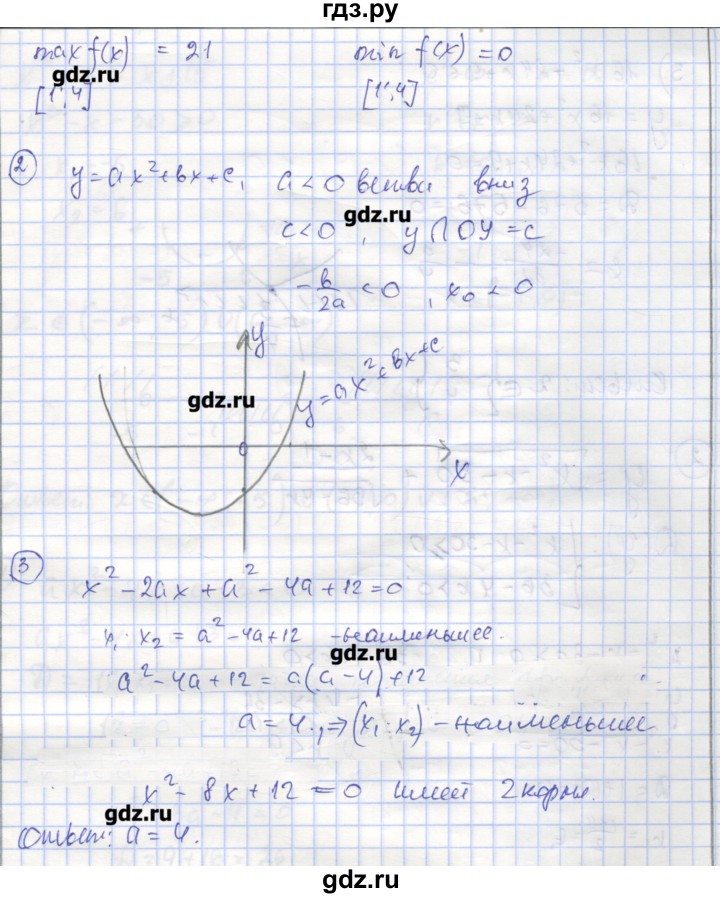 гдз.ру
max f(x) = 21 min f(x) = 0
gdz.ru
[1; 4] [1; 4]
② y = ax² + вx + c, a < 0 ветви вниз
gdz.ru
c < 0, y ∩ OY = c
-в/2a < 0, x₀ < 0
y
y = ax² + вx + c
gdz.ru
0
x
③ x² - 2ax + a² - 4a + 12 = 0
x₁ · x₂ = a² - 4a + 12 - наименьшее.
gdz.ru
a² - 4a + 12 = a(a - 4) + 12
a = 4., ⇒ (x₁ · x₂) - наименьшее
x² - 8x + 12 = 0 имеет 2 корня.
gdz.ru
Ответ: a = 4.
gdz.ru